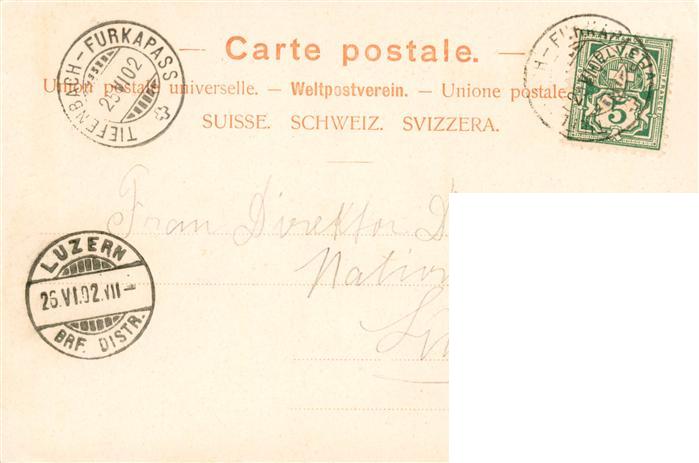 Carte postale.
Union postale universelle. — Weltpostverein. — Unione postale
SUISSE. SCHWEIZ. SVIZZERA.
TIEFENBACH - FURKAPASS
25.VI.02
HELVETIA
5
Frau Direktor D
Nation
LUZERN
26.VI.02.VII-
BRF. DISTR.